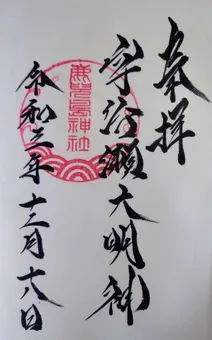 奉拝
宇治瀬大明神
鹿兒島神社
令和三年十二月十八日